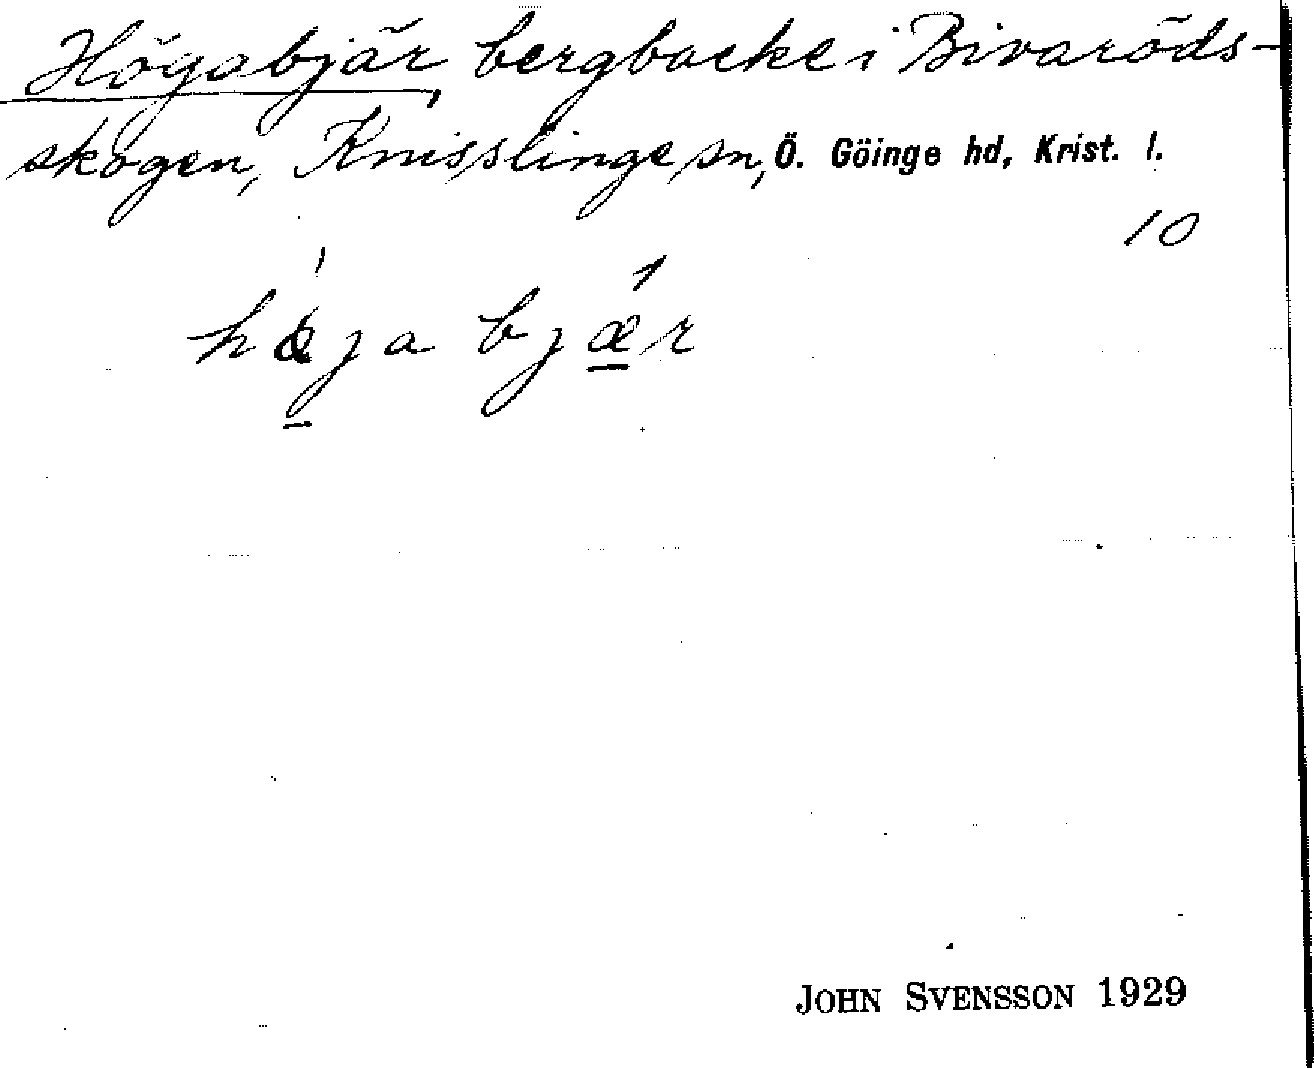 Högabjär, bergbacke i Bivaröds-
skogen, Knisslinge sn, Ö. Göinge hd, Krist. l.
10
bjær
JOHN SVENSSON 1929